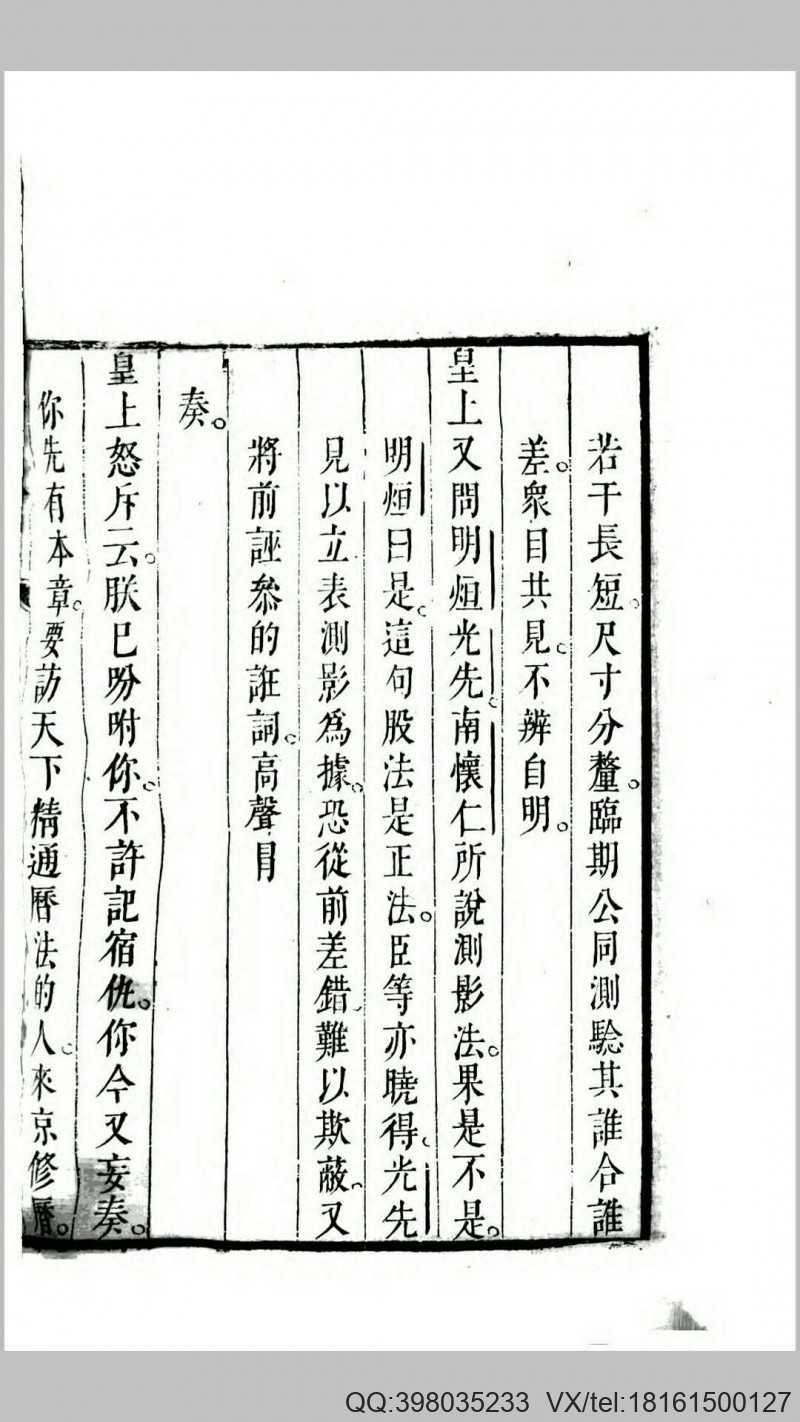 若干長短。尺寸分釐。臨期公同測驗其誰合誰
差。衆目共見。不辨自明。
皇上又問明烜光先。南懷仁所說測影法。果是不是。
明烜曰是。這句股法是正法。臣等亦曉得。光先
見以立表測影爲據。恐從前差錯。難以欺蔽。又
將前誣叅的誑詞。高聲冐
奏。
皇上怒斥云。朕已吩咐你。不許記宿仇。你今又妄奏。
你先有本章。要訪天下精通曆法的人。來京修曆。
QQ:398035233 VX/tel:18161500127